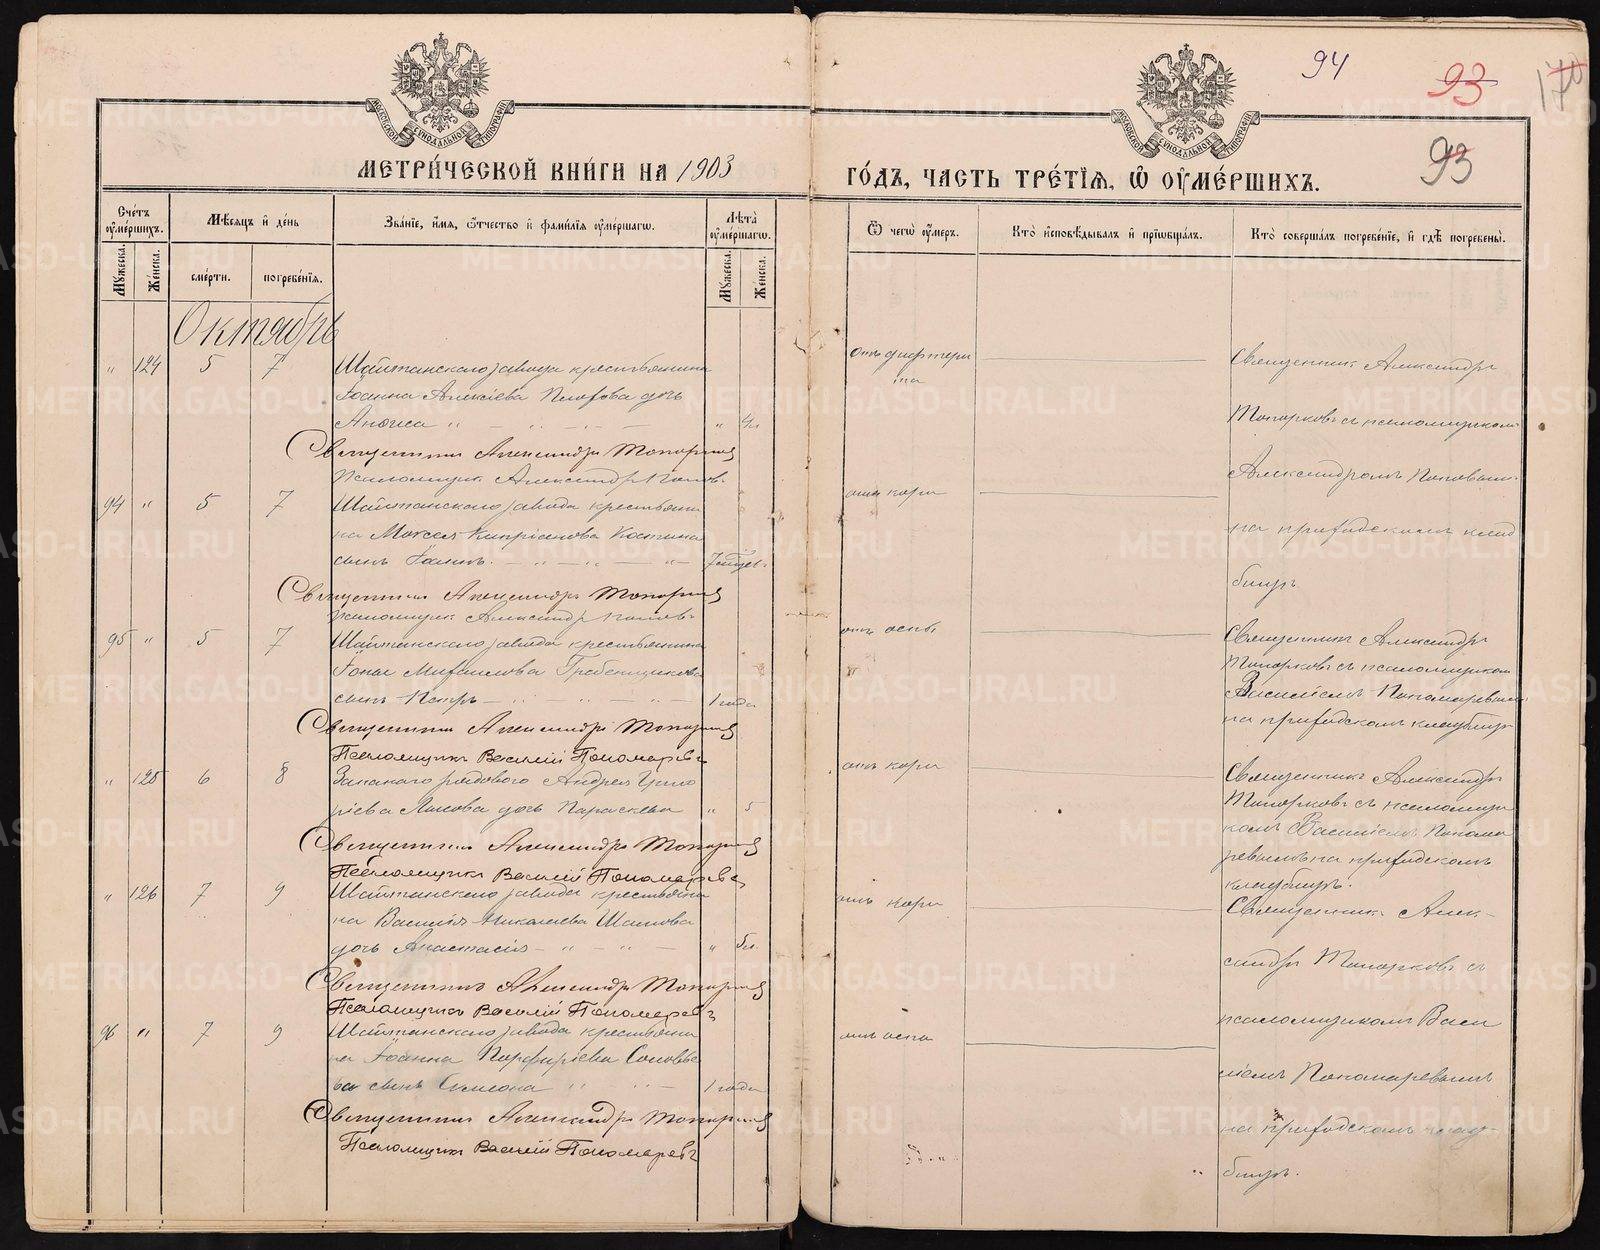 94
93
170
93
МОСКОВСКОЙ СѴНОДАЛЬНОЙ ТИПОГРАФІИ
МОСКОВСКОЙ СѴНОДАЛЬНОЙ ТИПОГРАФІИ
МЕТРИ́ЧЕСКОЙ КНИ́ГИ НА 1903 ГО́ДЪ, ЧАСТЬ ТРЕ́ТІѦ, Ѡ ОУМЕ́РШИХЪ.
Сче́тъ оумершихъ.
Мѣсяцъ и де́нь
Зва́нїе, и́мя, ѿтчество и фами́лїя оуме́ршагѡ.
Лѣта̀ оуме́ршагѡ.
Ѿ чегѡ̀ оу́меръ.
Кто̀ исповѣ́дывалъ и прїѡбща́лъ.
Кто̀ соверша́лъ погребе́нїе, и гдѣ̀ погребены̀.
Мꙋжеска.
Же́нска.
сме́рти.
погребе́нїя.
Мꙋжеска.
Же́нска.
Октябрь
" 124 5 7 Шайтанскаго завода крестьянина
Іоанна Алексіева дочь
Анѳиса " 4 л
отъ дифтерита
Священникъ Александръ
Топорковъ съ псаломщикомъ
Александромъ Поповымъ
на приходскомъ кладбищѣ
Священникъ Александръ Топорковъ
Псаломщикъ Александръ Поповъ
94 " 5 7 Шайтанскаго завода крестьянина
Кипріанова Костина
сынъ
отъ кори
Священникъ Александръ Топорковъ
Псаломщикъ Александръ Поповъ
95 " 5 7 Шайтанскаго завода крестьянина
Іоны Михаилова Гребенщикова
сынъ Петръ 1 года
отъ оспы
Священникъ Александръ
Топорковъ съ псаломщикомъ
Василіемъ Пономаревымъ
на приходскомъ кладбищѣ
Священникъ Александръ Топорковъ
Псаломщикъ Василій Пономаревъ
" 125 6 8 Запаснаго рядового Андрея Григо
ріева дочь Параскева " 5
отъ кори
Священникъ Александръ
Топорковъ съ псаломщи
комъ Василіемъ Понома
ревымъ на приходскомъ
кладбищѣ.
Священникъ Александръ Топорковъ
Псаломщикъ Василій Пономаревъ
" 126 7 9 Шайтанскаго завода крестьяни
на Василія Николаева
дочь Анастасія " 6 л.
отъ кори
Священникъ Алек-
сандръ Топорковъ съ
псаломщикомъ Васи
ліемъ Пономаревымъ
на приходскомъ клад-
бищѣ.
Священникъ Александръ Топорковъ
Псаломщикъ Василій Пономаревъ
96 " 7 9 Шайтанскаго завода крестьяни
на Іоанна Порфиріева Соловье
ва сынъ Симеонъ 1 года
отъ оспы
Священникъ Александръ Топорковъ
Псаломщикъ Василій Пономаревъ
METRIKI.GASO-URAL.RU